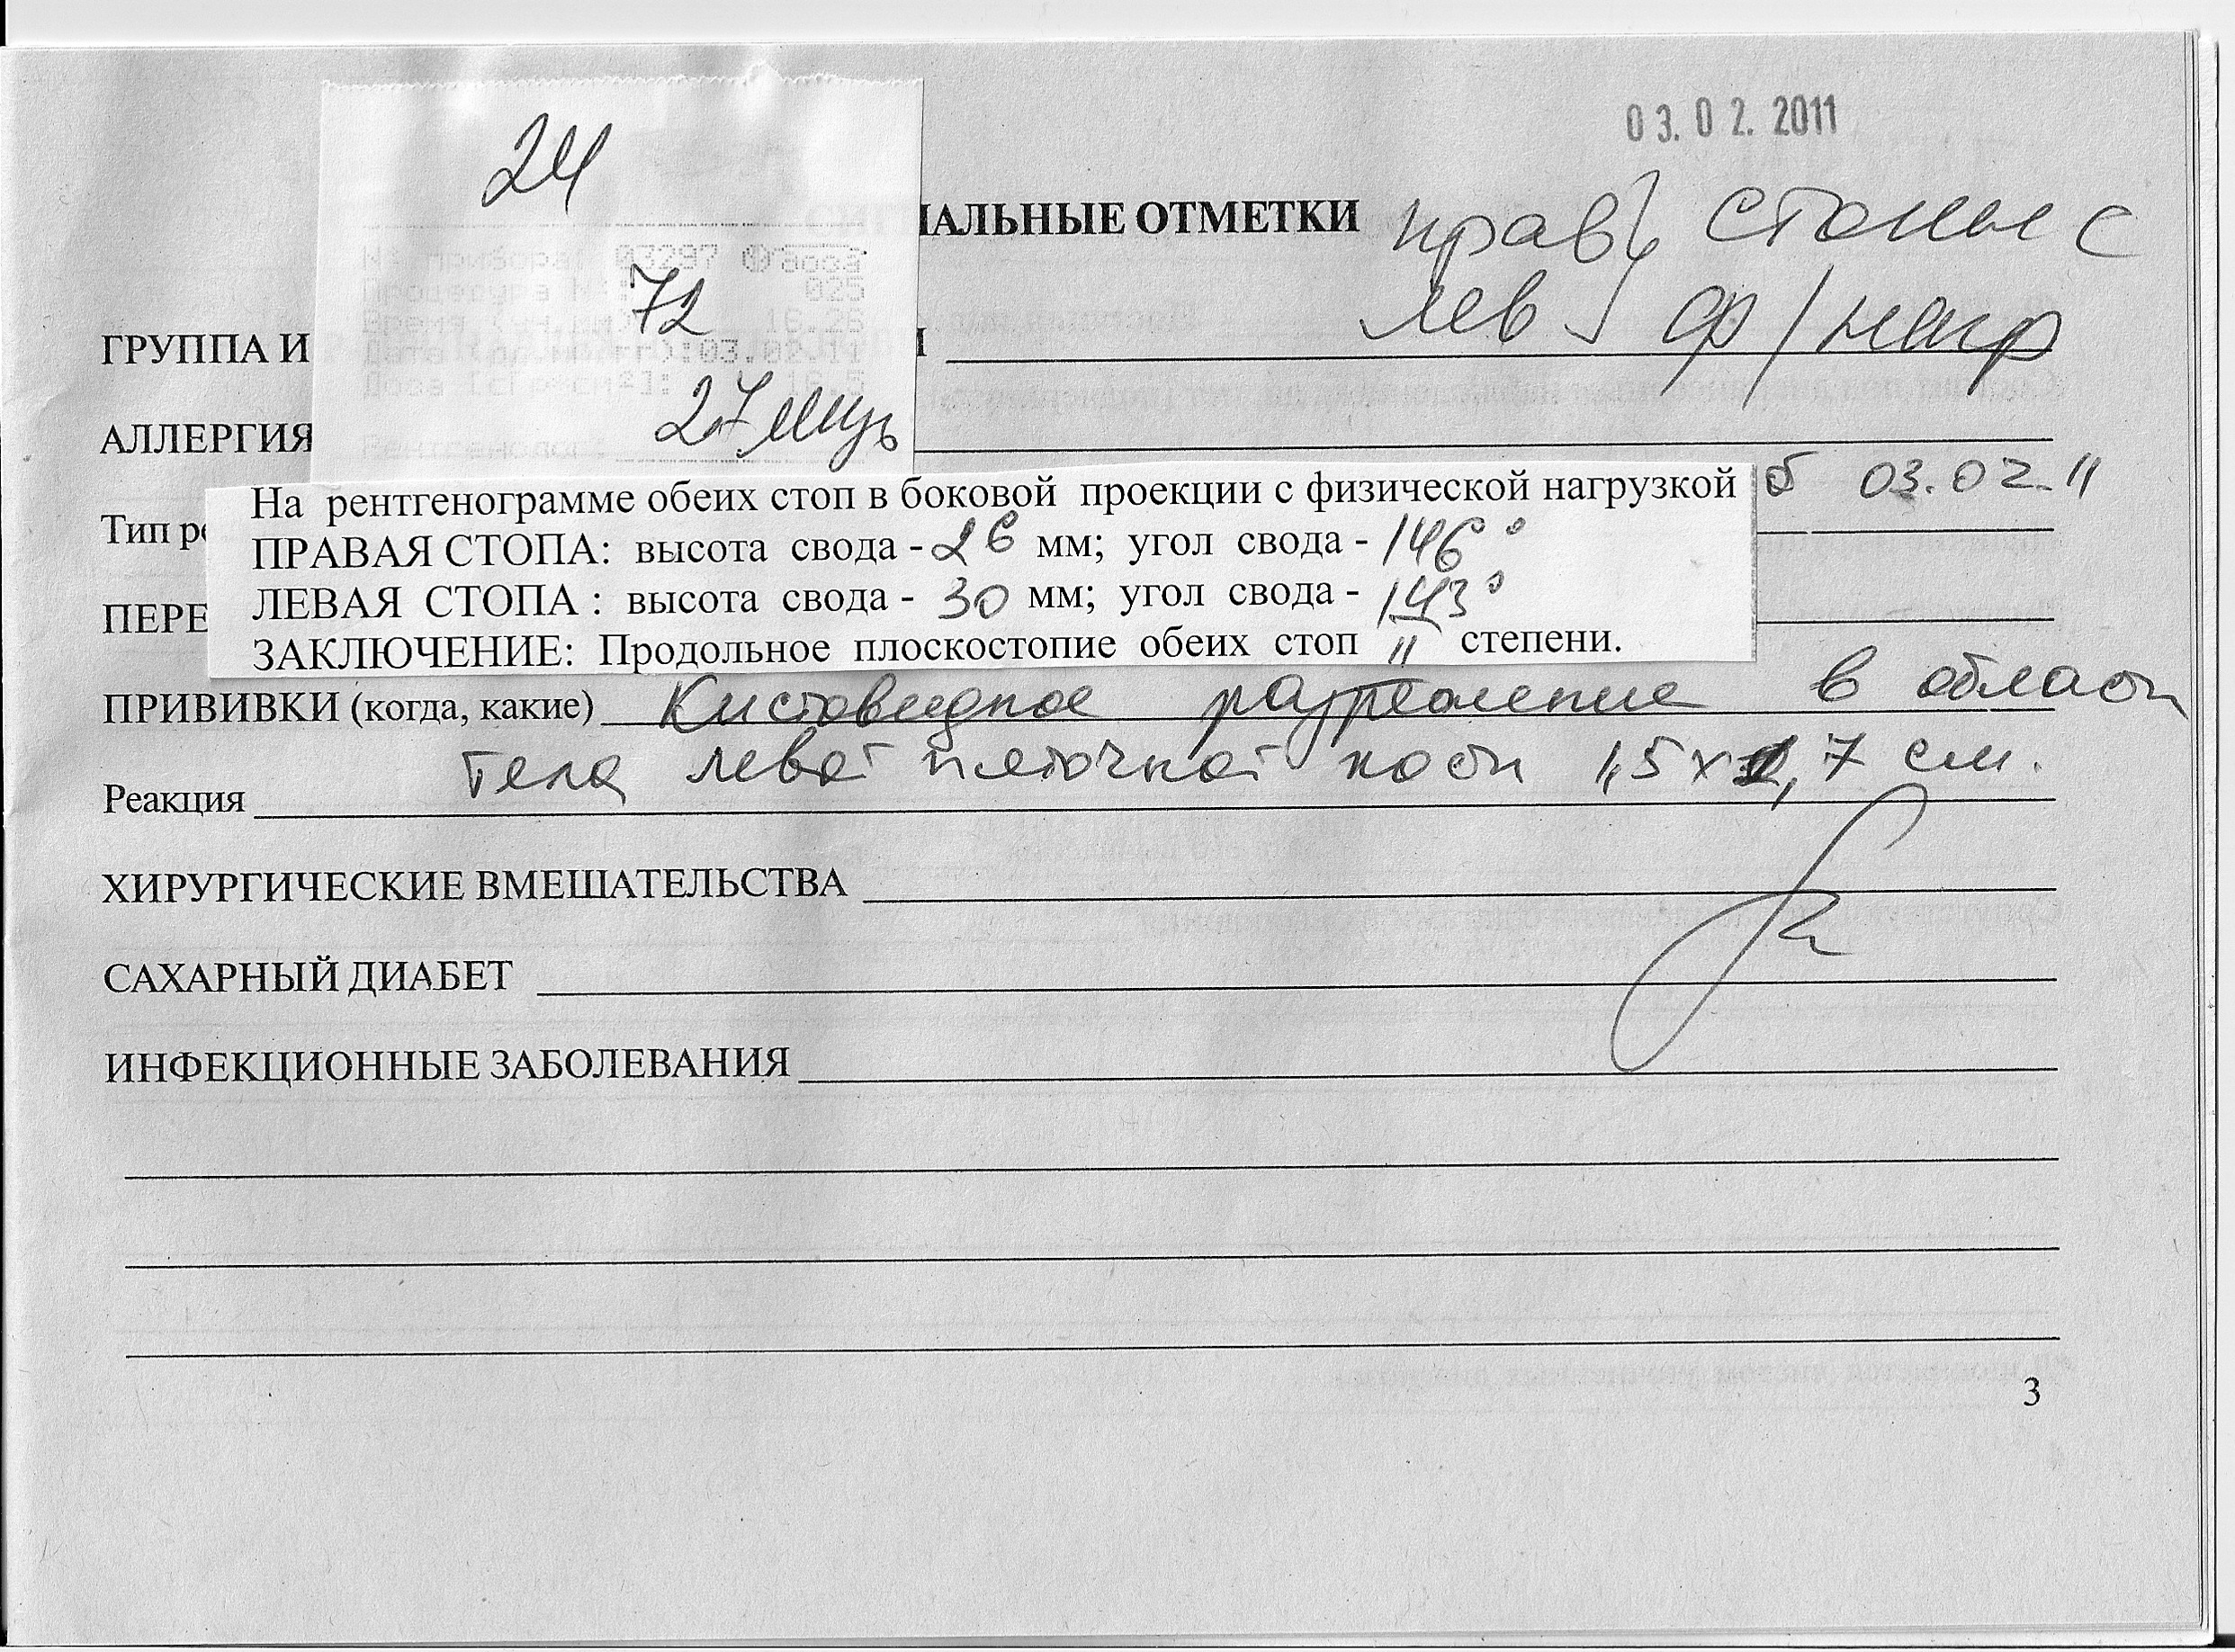 03.02.2011
24
ИАЛЬНЫЕ ОТМЕТКИ прав стопы с
лев ф/нагр
№ прибора: 03297 Доза
Процедура №: 025
72
16.26
Дата 03.02.11
Доза 16.5
27 мкзв
Рентгенолог:
ГРУППА И
АЛЛЕРГИЯ
Тип ре 03.02.11
На рентгенограмме обеих стоп в боковой проекции с физической нагрузкой
ПРАВАЯ СТОПА: высота свода - 26 мм; угол свода - 146°
ЛЕВАЯ СТОПА : высота свода - 30 мм; угол свода - 143°
ЗАКЛЮЧЕНИЕ: Продольное плоскостопие обеих стоп II степени.
ПЕРЕ
ПРИВИВКИ (когда, какие) Кистовидное разрежение в области
тела левой пяточной кости 1,5 х 2,7 см.
Реакция
ХИРУРГИЧЕСКИЕ ВМЕШАТЕЛЬСТВА
САХАРНЫЙ ДИАБЕТ
ИНФЕКЦИОННЫЕ ЗАБОЛЕВАНИЯ
3